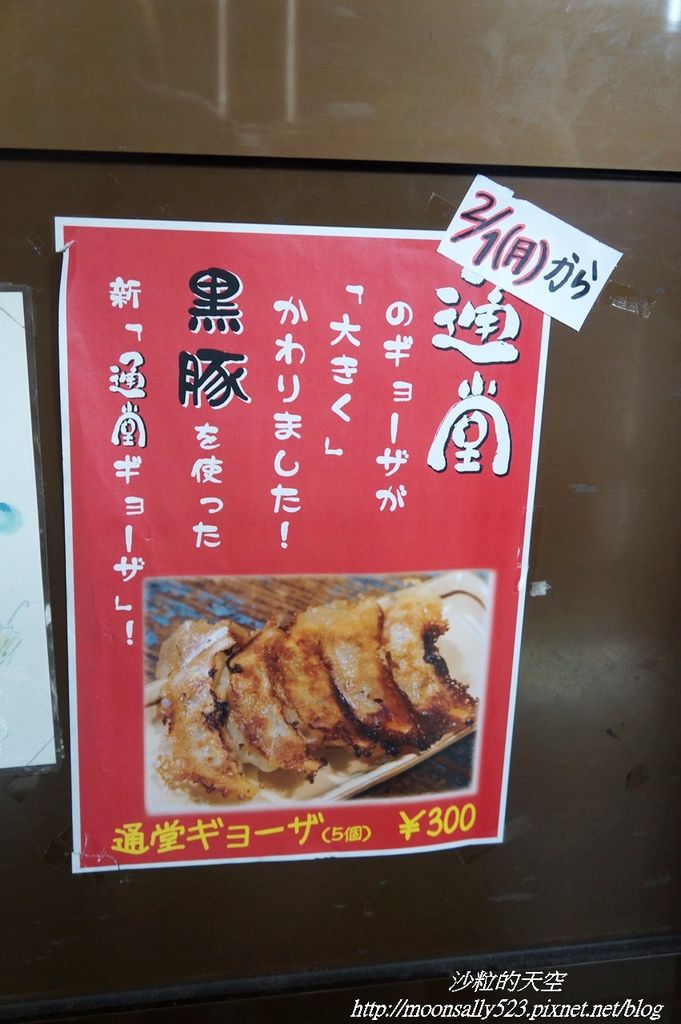 2/1(月)から
通堂
のギョーザが
「大きく」
かわりました!
黒豚を使った
新「通堂ギョーザ」!
通堂ギョーザ(5個) ¥300
沙粒的天空
http://moonsally523.pixnet.net/blog